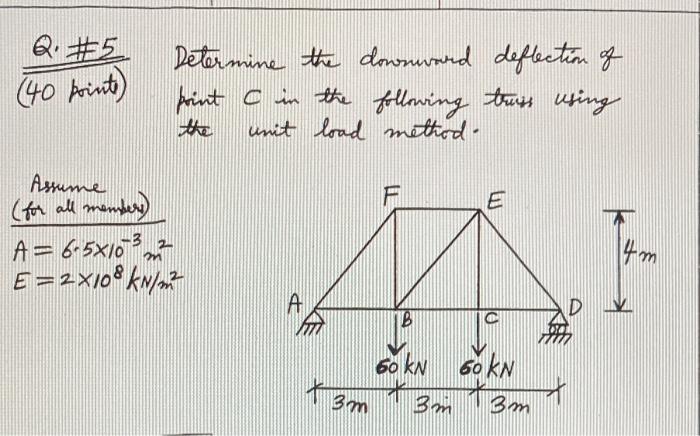 Q. #5
(40 points)
Determine the downward deflection of
point C in the following truss using
the unit load method.
Assume
(for all members)
A = 6.5×10⁻³ m²
E = 2×10⁸ kN/m²
F
E
4m
A
B
C
D
60 kN
60 kN
3m
3m
3m